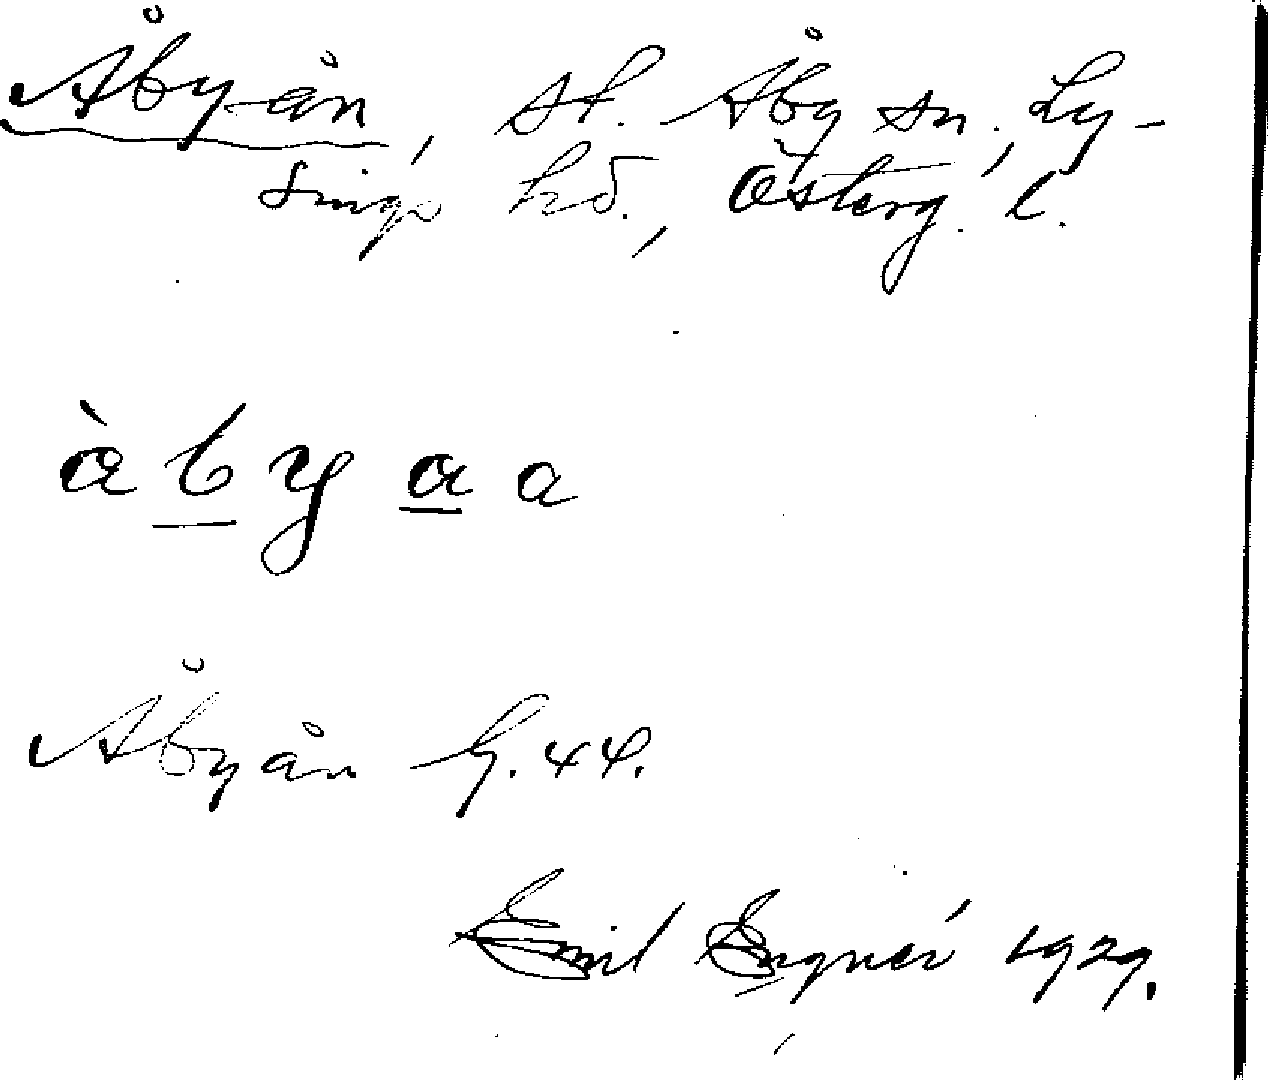 Åby-ån, St. Åby sn., Ly-
sings hd., Österg. l.
à b y a a
Åbyån G. 44.
Emil 1929.